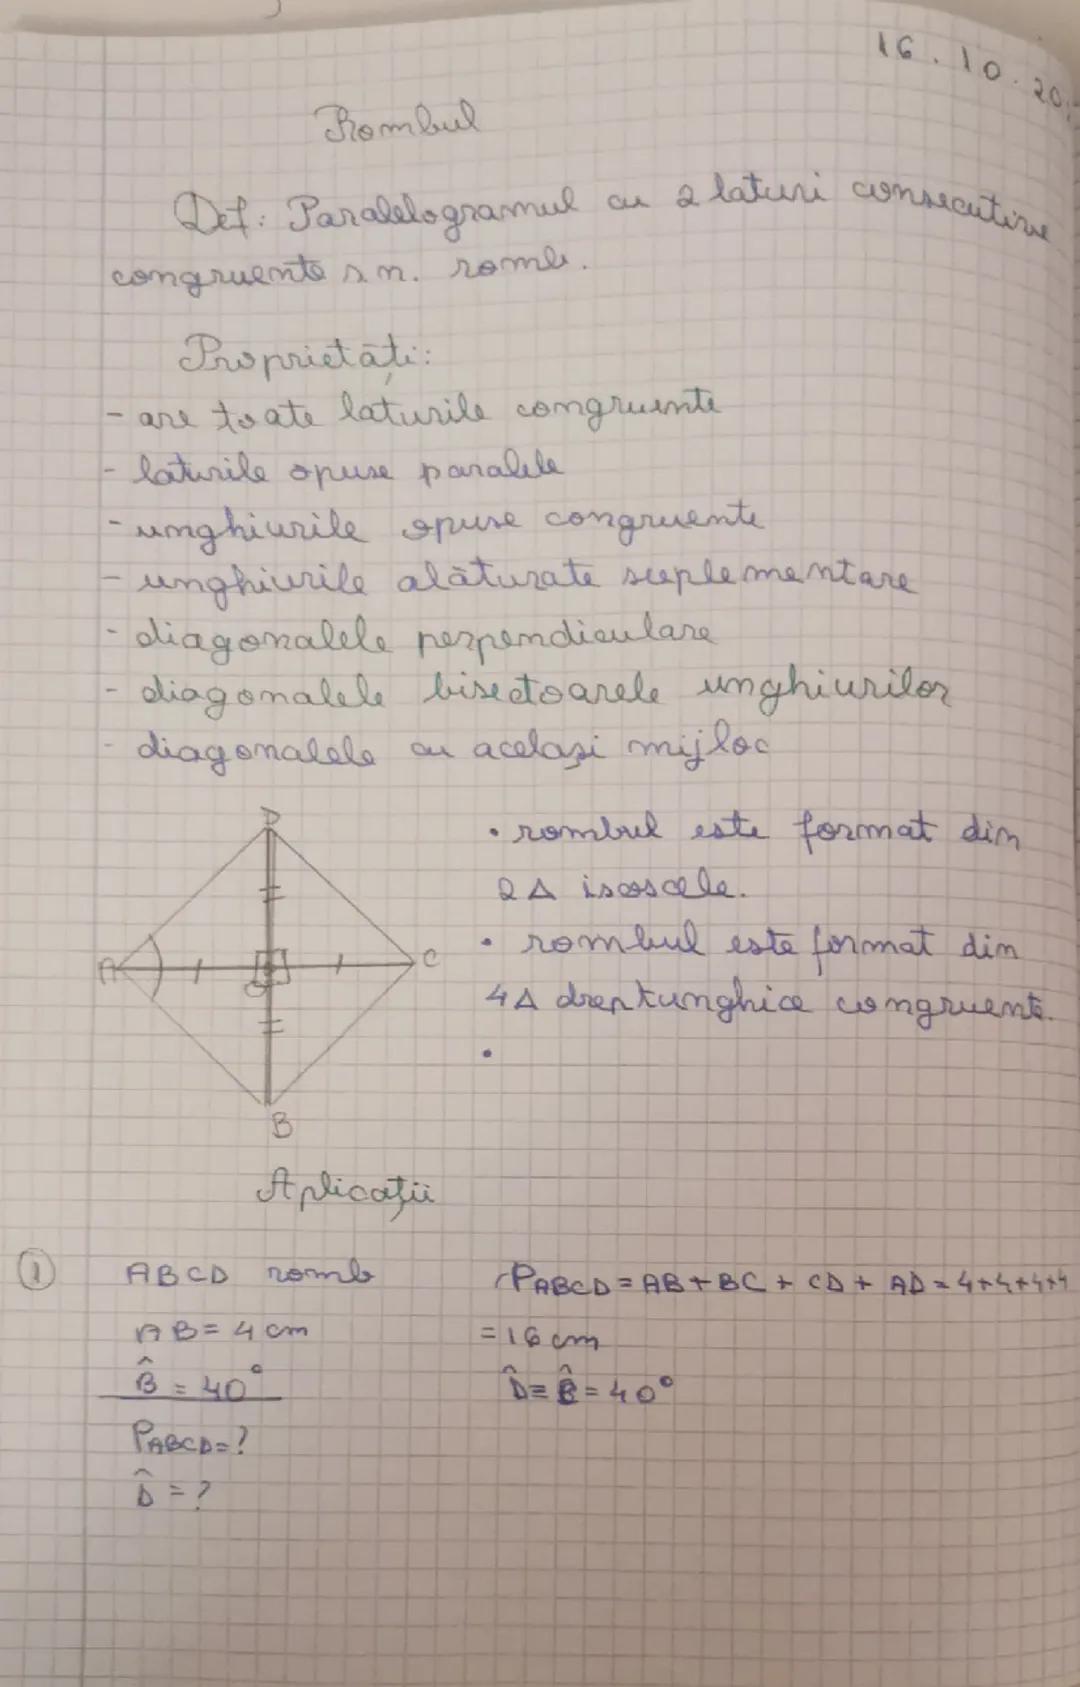 16.10.20
Rombul
Def: Paralelogramul cu 2 laturi consecutive
congruente s.n. romb.
Proprietăți:
- are toate laturile congruente
- laturile opuse paralele
- unghiurile opuse congruente
- unghiurile alăturate suplementare
- diagonalele perpendiculare
- diagonalele bisectoarele unghiurilor
- diagonalele au același mijloc
D
A
C
O
B
• rombul este format din
2 Δ isoscele.
• rombul este format din
4 Δ dreptunghice congruente.
•
Aplicații
① ABCD romb
AB = 4 cm
B̂ = 40°
PABCD = ?
D̂ = ?
PABCD = AB + BC + CD + AD = 4+4+4+4
= 16 cm
D̂ ≡ B̂ = 40°